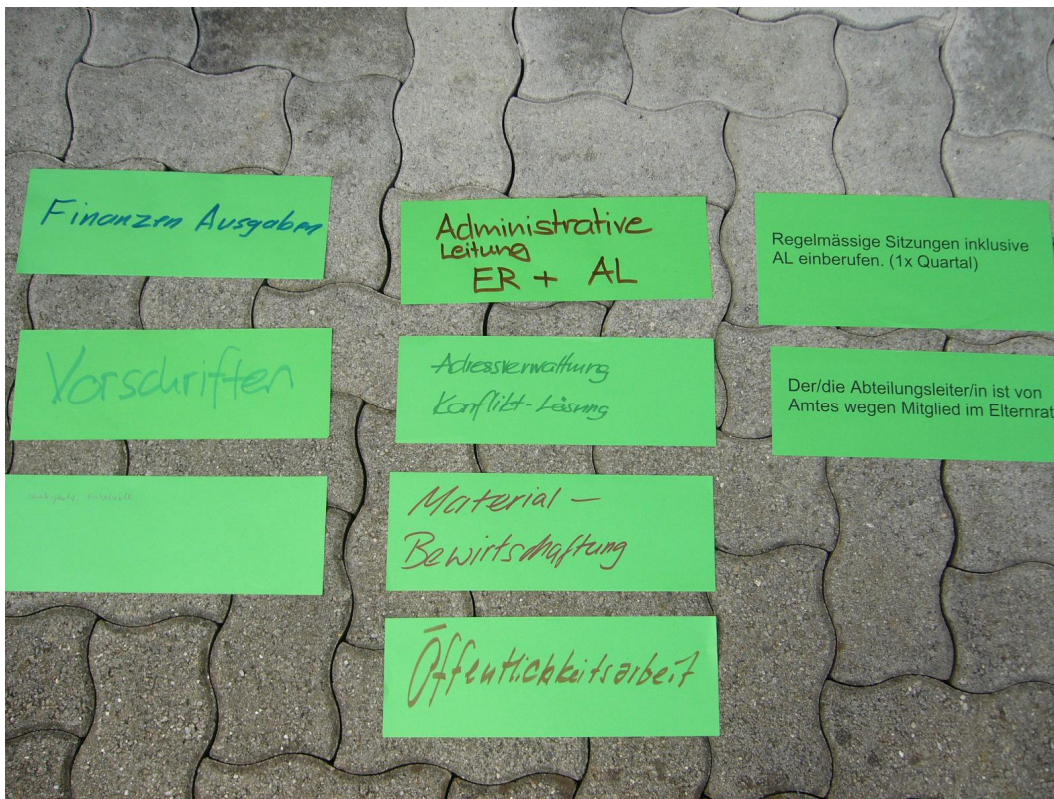 Finanzen Ausgaben
Vorschriften
Administrative
Leitung
ER + AL
Adressverwaltung
Konflikt-Lösung
Material -
Bewirtschaftung
Öffentlichkeitsarbeit
Regelmässige Sitzungen inklusive
AL einberufen. (1x Quartal)
Der/die Abteilungsleiter/in ist von
Amtes wegen Mitglied im Elternrat